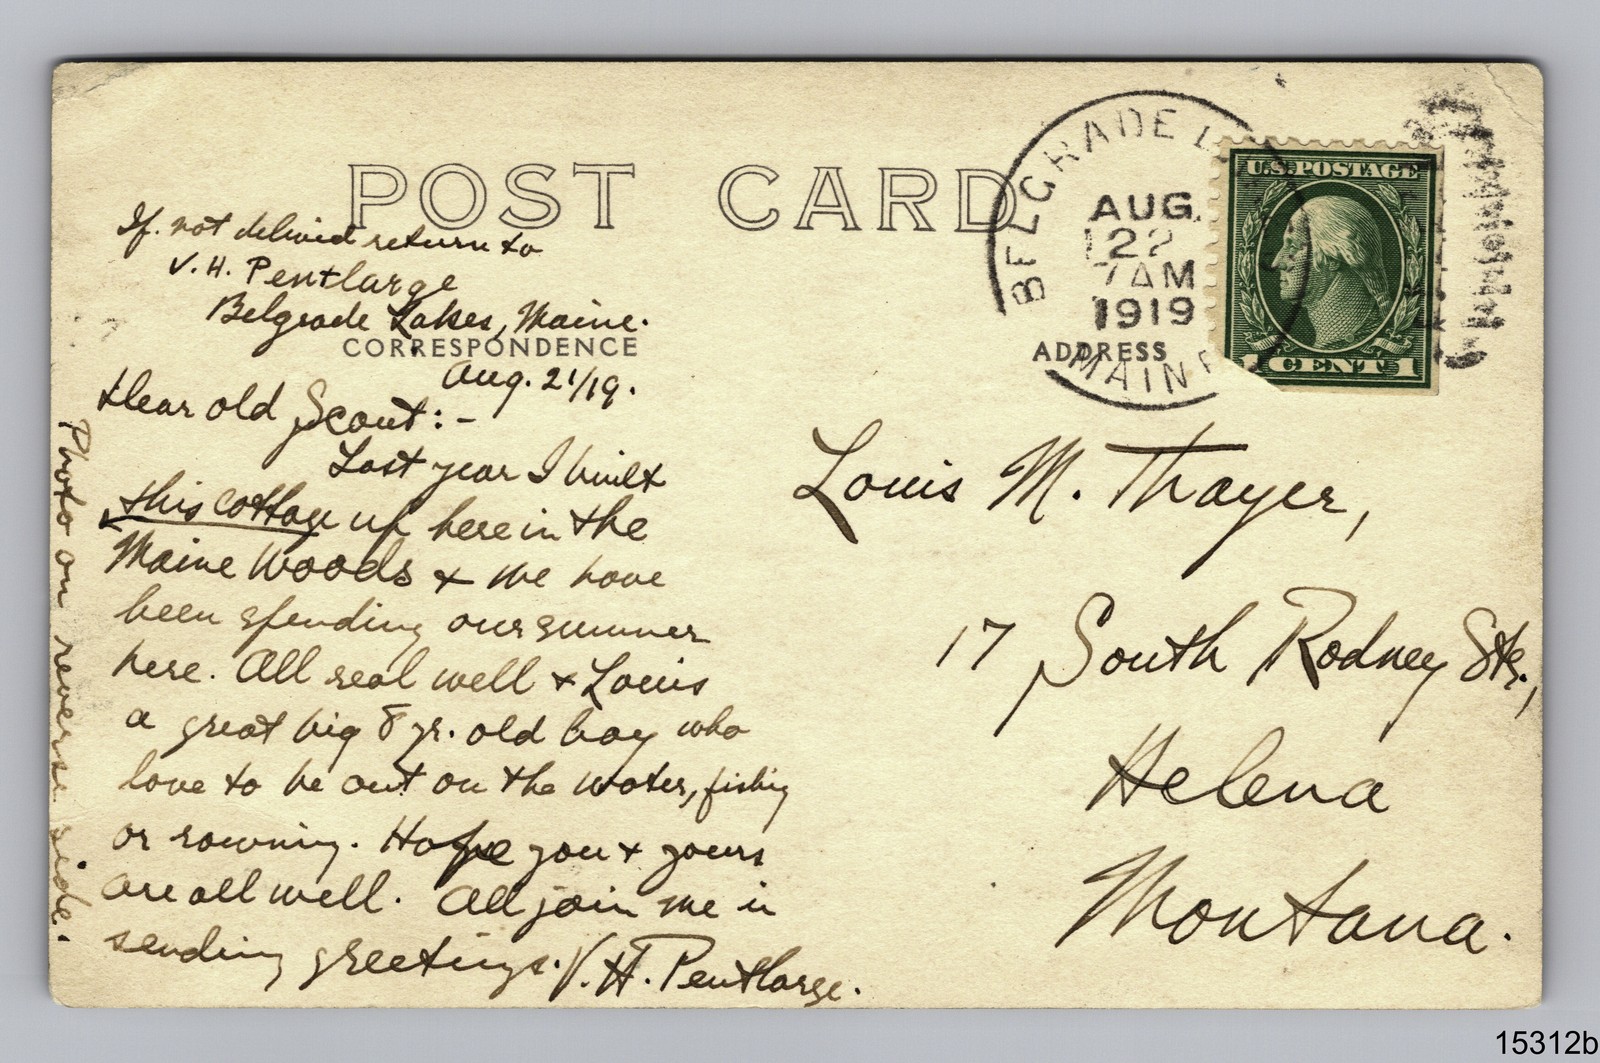 POST CARD
If not delivered return to
V. H. Pentlarge
Belgrade Lakes, Maine.
CORRESPONDENCE
Aug. 21/19.
Dear old Scout:-
Last year I built
this cottage up here in the
Maine Woods & we have
been spending our summer
here. All real well & Louis
a great big 8 yr. old boy who
love to be out on the water, fishing
or rowning. Hope you & yours
are all well. All join me in
sending greetings. V. H. Pentlarge.
Photo on reverse side.
BELGRADE L
AUG
22
7 AM
1919
MAINE
U.S. POSTAGE
1 CENT 1
ADDRESS
Louis M. Thayer,
17 South Rodney Str.,
Helena
Montana.
15312b